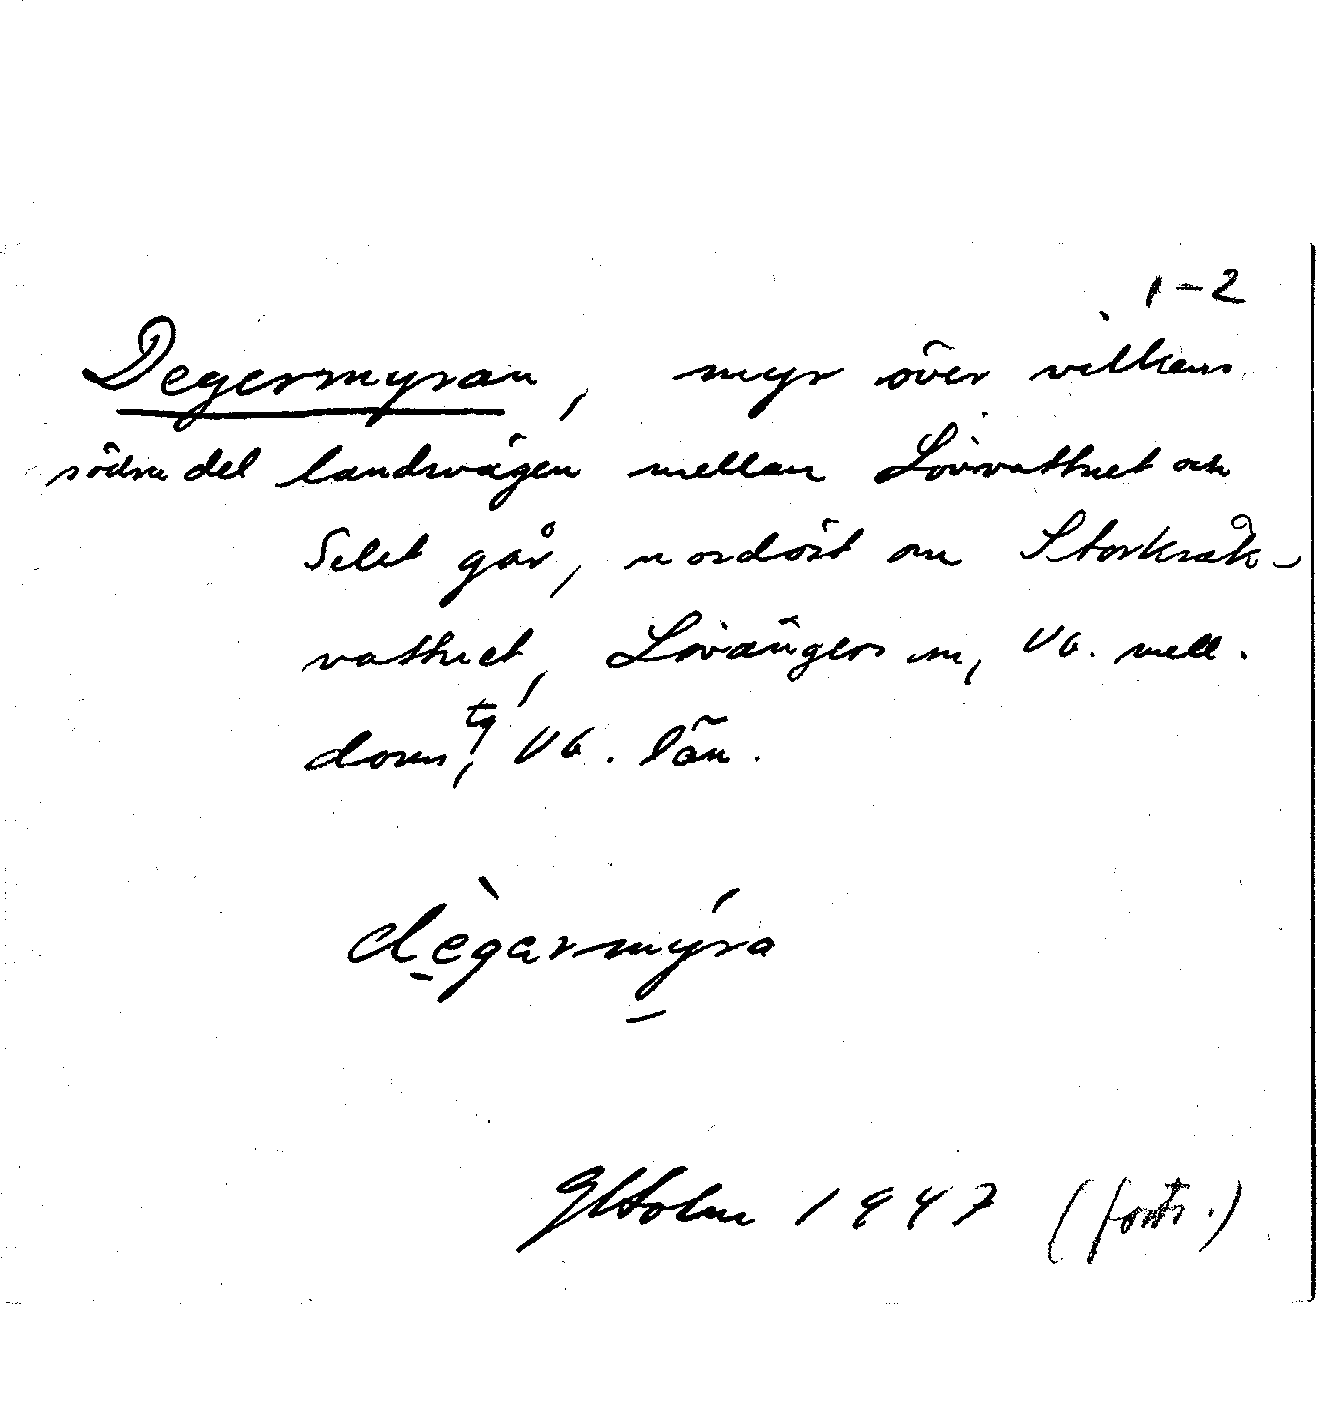 1-2
Degermyran, myr över vilkens
södra del landsvägen mellan Lövvattnet och
Selet går, nordöst om Storkråk-
vattnet, Lövångers sn, Vb. mell.
doms tg, Vb. län.
dègarmýra
GHolm 1947 (forts.)